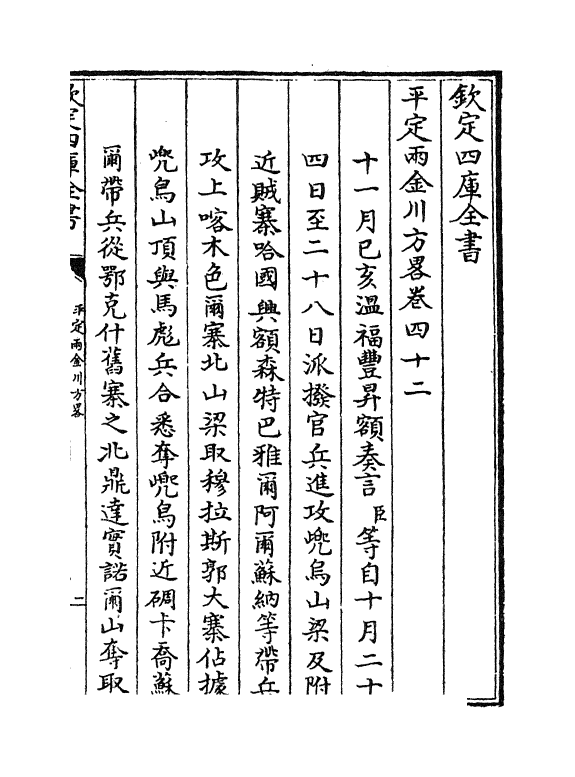 欽定四庫全書
平定兩金川方畧卷四十二
十一月己亥溫福豐昇額奏言臣等自十月二十
四日至二十八日派撥官兵進攻兠烏山梁及附
近賊寨哈國興額森特巴雅爾阿爾蘇納等帶兵
攻上喀木色爾寨北山梁取穆拉斯郭大寨佔據
兠烏山頂與馬彪兵合悉奪兠烏附近碉卡喬蘇
爾帶兵從鄂克什舊寨之北鼎達實諾爾山奪取
欽定四庫全書
平定兩金川方畧